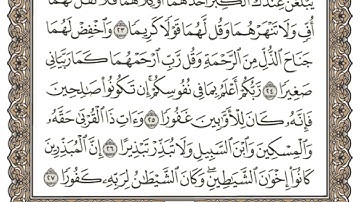 يَبْلُغَنَّ عِندَكَ ٱلْكِبَرَ أَحَدُهُمَآ أَوْ كِلَاهُمَا فَلَا تَقُل لَّهُمَآ
أُفٍّ وَلَا تَنْهَرْهُمَا وَقُل لَّهُمَا قَوْلًا كَرِيمًا ٢٣ وَٱخْفِضْ لَهُمَا
جَنَاحَ ٱلذُّلِّ مِنَ ٱلرَّحْمَةِ وَقُل رَّبِّ ٱرْحَمْهُمَا كَمَا رَبَّيَانِي
صَغِيرًا ٢٤ رَّبُّكُمْ أَعْلَمُ بِمَا فِي نُفُوسِكُمْ إِن تَكُونُوا۟ صَٰلِحِينَ
فَإِنَّهُۥ كَانَ لِلْأَوَّٰبِينَ غَفُورًا ٢٥ وَءَاتِ ذَا ٱلْقُرْبَىٰ حَقَّهُۥ
وَٱلْمِسْكِينَ وَٱبْنَ ٱلسَّبِيلِ وَلَا تُبَذِّرْ تَبْذِيرًا ٢٦ إِنَّ ٱلْمُبَذِّرِينَ
كَانُوٓا۟ إِخْوَٰنَ ٱلشَّيَٰطِينِ وَكَانَ ٱلشَّيْطَٰنُ لِرَبِّهِۦ كَفُورًا ٢٧